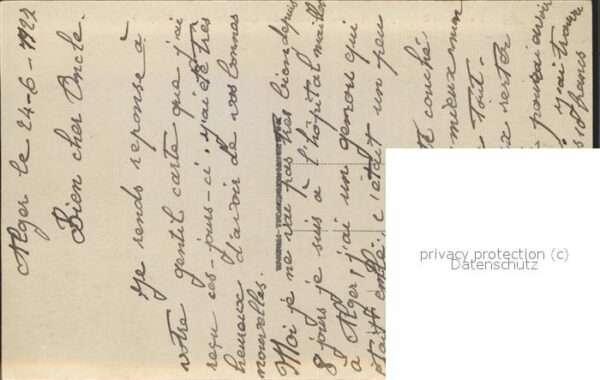 Alger le 24-6-1922
Bien cher Oncle.
Je rends reponse à
votre gentil carte que j'ai
reçu ces-jours-ci. j'ai été tres
heureux d'avoir de vos bonnes
nouvelles.
Moi je ne vai pas tres bien depuis
8 jours je suis a l'hôpital maillot
à Alger, j'ai un genou qui
était enflé, c'était un peu
couché
mieux
Tout-
rester
pouvoir
j'ai
francs
privacy protection (c)
Datenschutz